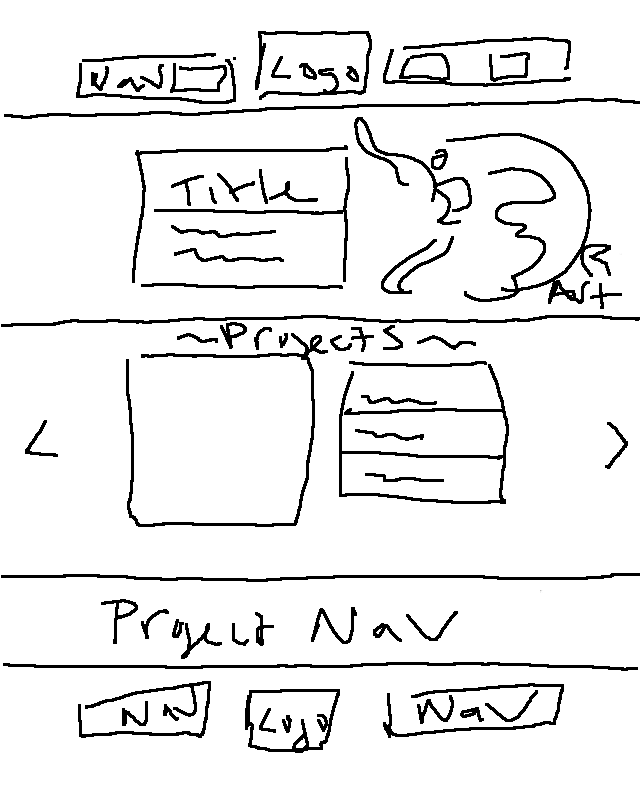 NaV
Logo
Title
Art
~Projects~
<
>
Project NaV
NaV
Logo
NaV